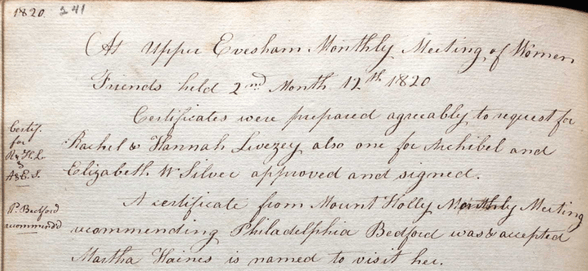 1820 241
At Upper Evesham Monthly Meeting of Women
Friends held 2nd Month 12th 1820
Certificates were prepared agreably to request for
Certif. for R & H L & A & E. S.
Rachel & Hannah Livezey also one for Achibel and
Elizabeth W Silver approved and signed.
A certificate from Mount Holly Monthly Meeting
P. Bedford recommend
recommending Philadelphia Bedford was accepted
Martha Haines is named to visit her.